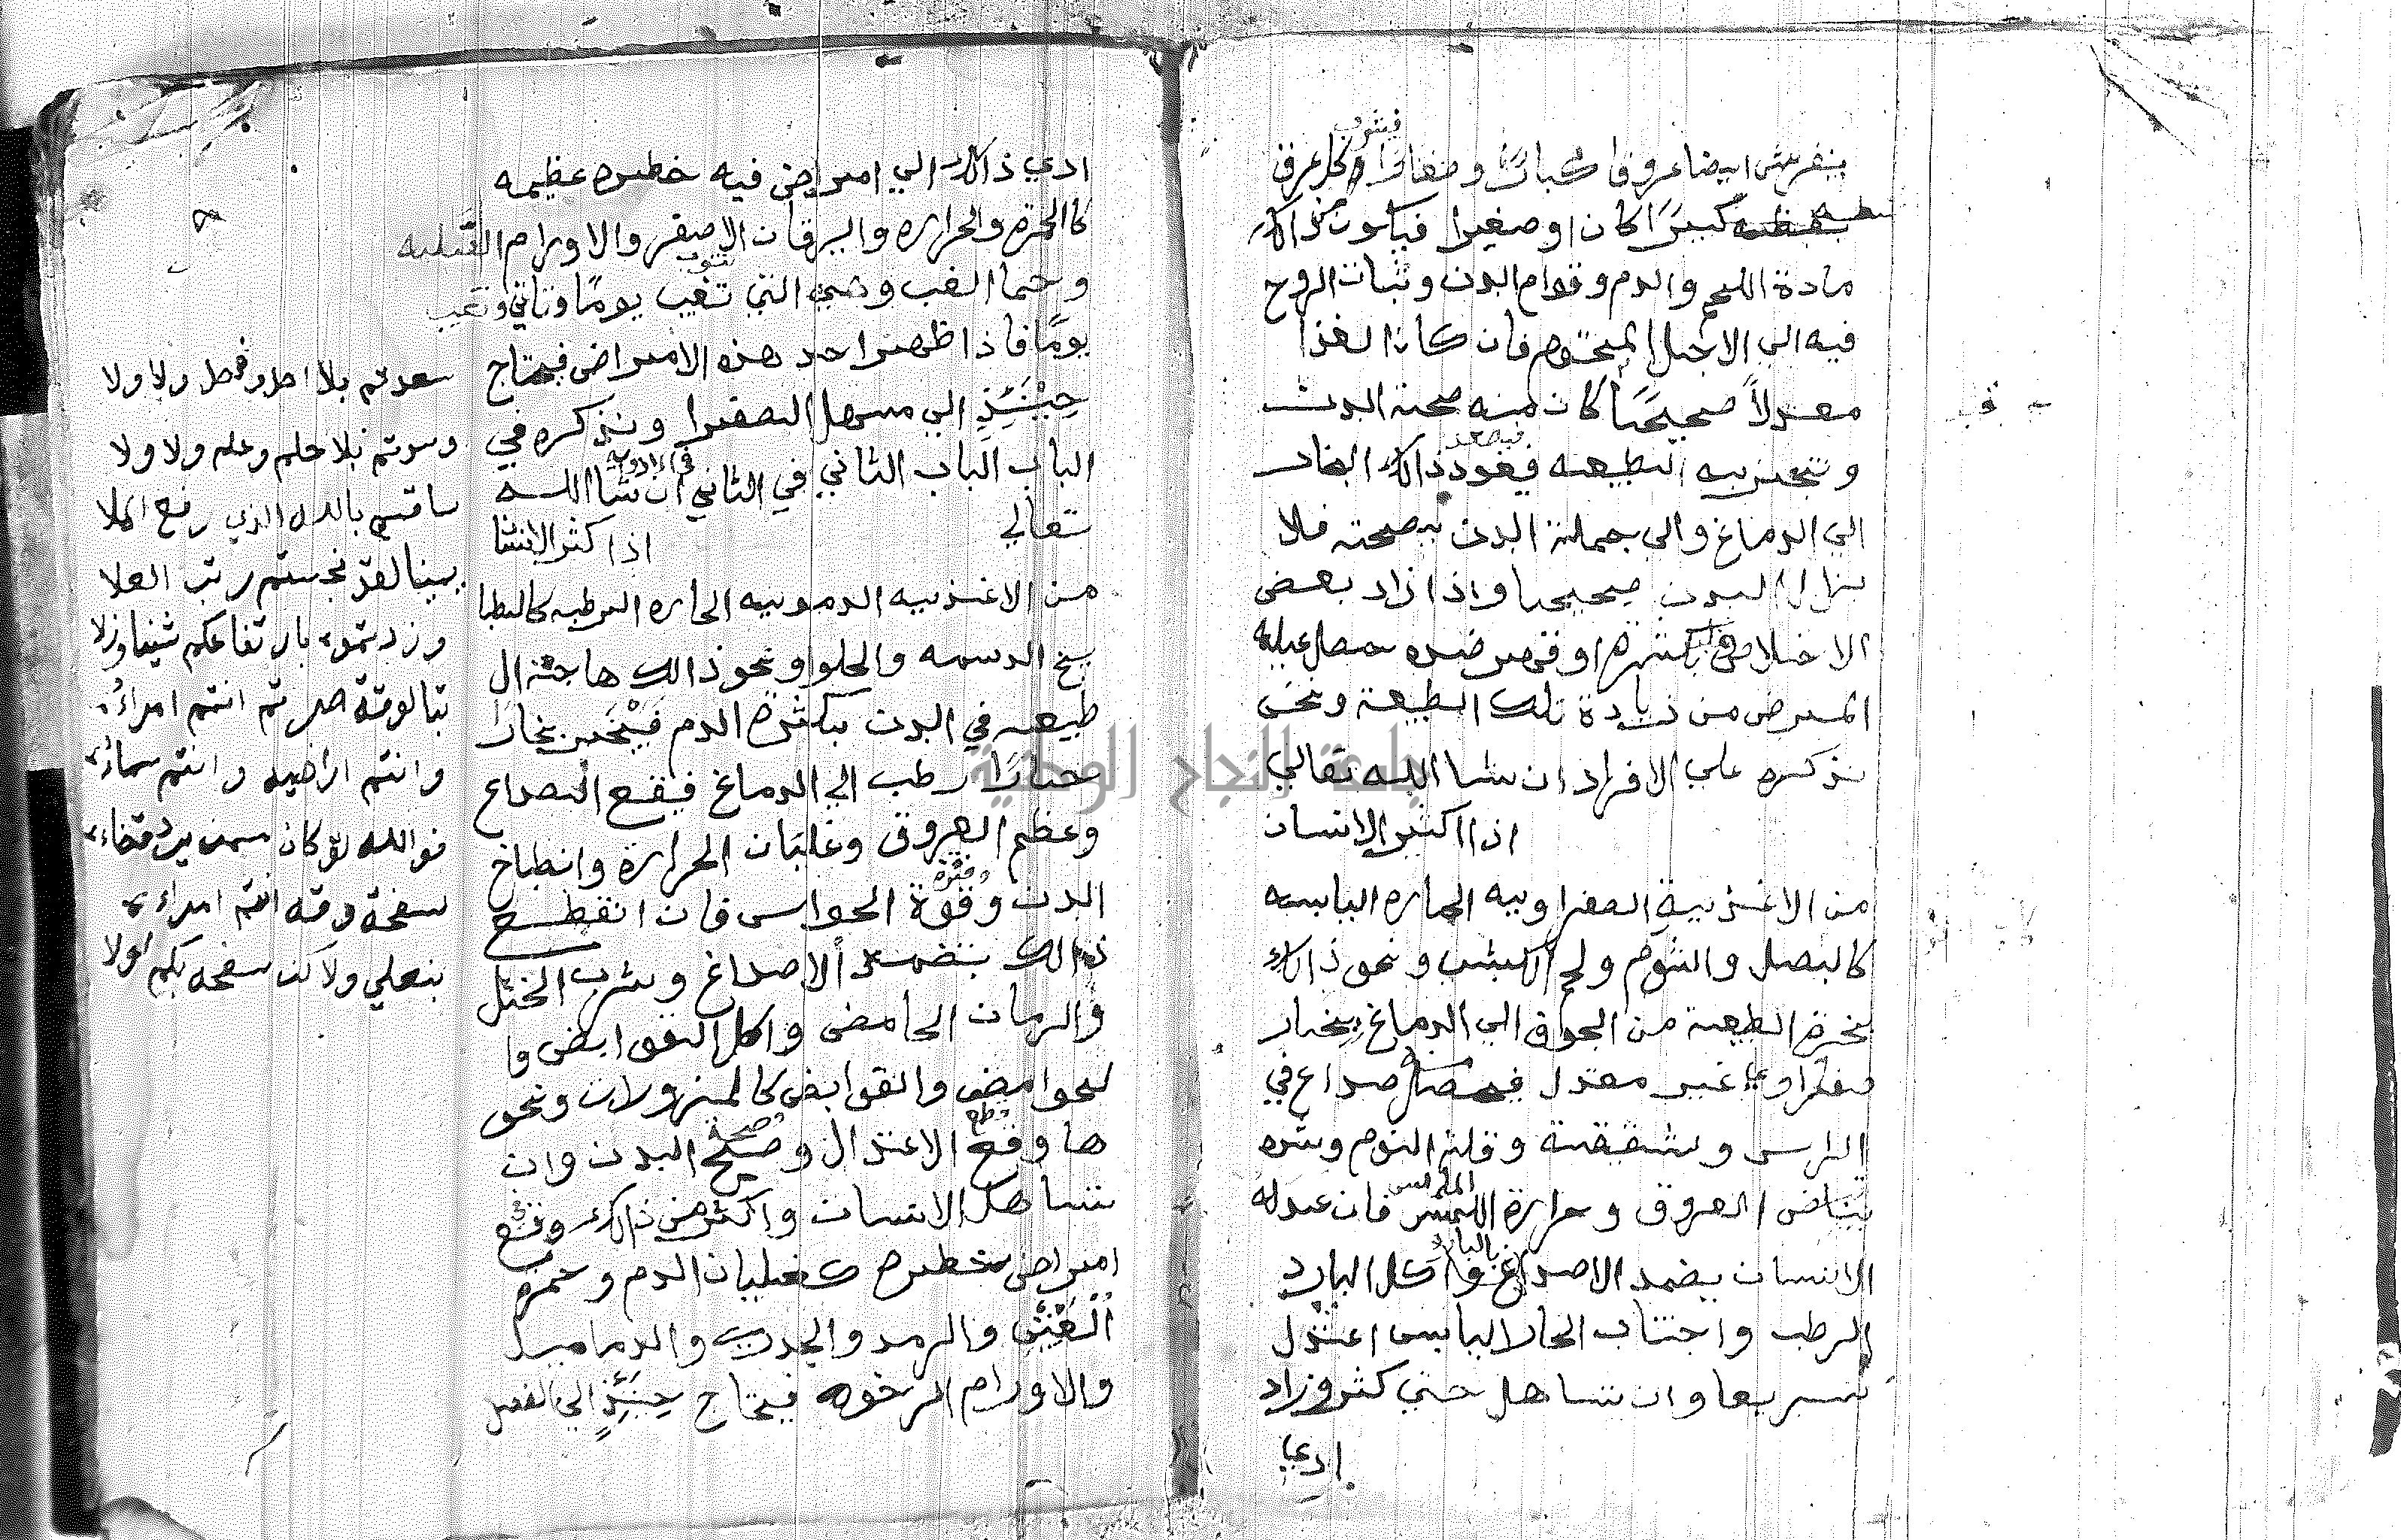 فيشرب
ينفرش ايضا عروقا كبارًا وصغارًا وكل عرق
بطبعه كبيرًا كان او صغيرا فيكون ذالك
مادة اللحم والدم وقوام البدن وثبات الروح
فيه الي الاجل المحتوم فان كان الغذا
معتدلاً صحيحًا كان منه صحة البدن
فيصعد
وتنجذبيه الطبعه فيعود ذالك البخار
الي الدماغ والى جملة البدن بصحته فلا
يزال البدن صحيحا واذا زاد بعض
الاخلاط بكثره او قهر ضده حصل عليه
المرض من زيادة تلك الطبعة ونحن
نذكره علي الافراد ان شا الله تعالي
اذا اكثر الانسان
من الاغذية الصفراويه الحاره اليابسه
كالبصل والثوم ولحم الكبش ونحو ذالك
بخرة الطبعة من الجوف الي الدماغ بخار
صفراوي غير معتدل فحصل صداع في
الراس وشقيقة وقلة النوم وشده
الملمس
نباض العروق وحرارة اللمس فان عدله
بالبارد
الانسان بضمد الاصداغ واكل البارد
الرطب واجتناب الحار اليابس اعتدل
سريعا وان تساهل حتي كثر وزاد
ادي
ادي ذالك الي امراض فيه خطره عظيمه
كالحمره والحراره واليرقان الاصفر والاورام القليه
وحما الغب وهي التي تغب يومًا وتاتي وتغيب
يومًا فاذا ظهر احد هذه الامراض فيحتاج
حِيْنَئِذٍ الي مسهل الصفرا ونذكره في
في الادوية
الباب الباب الثاني في الثاني ان شا الله
تعالي
اذا كثر الانسا
من الاغذيه الدمويه الحاره الرطبه كالبطا
يخ الدسمه والحلو ونحو ذالك هاجت ال
طبعه في البدن بكثرة الدم فيْخَر بخارًا
حارًا رطب الي الدماغ فيقع الصداع
وعظم العروق وغليان الحرارة وانطباخ
وفتره
البدن وقوة الحواس فان انقطع
ذالك بتضمد الاصداغ وشرب الخل
والرمان الحامض واكل القوابض وا
لحوامض والقوابض كالمزورات ونحو
ها وقع الاعتدال وصلح البدن وان
تساهل الانسان واكثر من ذالك وقع
امراض خطره كغليان الدم وحمرة
الْعَيْنْ والرمد والجدري والدماميل
والاورام الرخوه فيحتاج حِيْنَئِذٍ الي الفصد
سعدتم بلا اصل وفصل ولا ولا
وسدتم بلا حلم وعلم ولا ولا
ساقسم بالله الذي رفع الملا
يمينا لقد نجستم رتب العلا
وزدتموه بارتفاعكم شينا وزلا
تبا لوقت صرتم انتم امراءُه
وانتم اراضيه وانتم سماءه
فوالله لو كان ممن يرد قضاءه
صفعت وقته انتم امراءه
بنعلي ولاكن صفعه بكم اولا